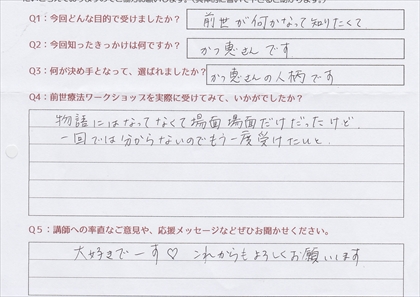 Q1：今回どんな目的で受けましたか？ 前世が何かなって知りたくて
Q2：今回知ったきっかけは何ですか？ かつ恵さんです
Q3：何が決め手となって、選ばれましたか？ かつ恵さんの人柄です
Q4：前世療法ワークショップを実際に受けてみて、いかがでしたか？
物語にはなってなくて場面場面だけだったけど、
一回では分からないのでもう一度受けたいと。
Q5：講師への率直なご意見や、応援メッセージなどぜひお聞かせください。
大好きでーす♡ これからもよろしくお願いします